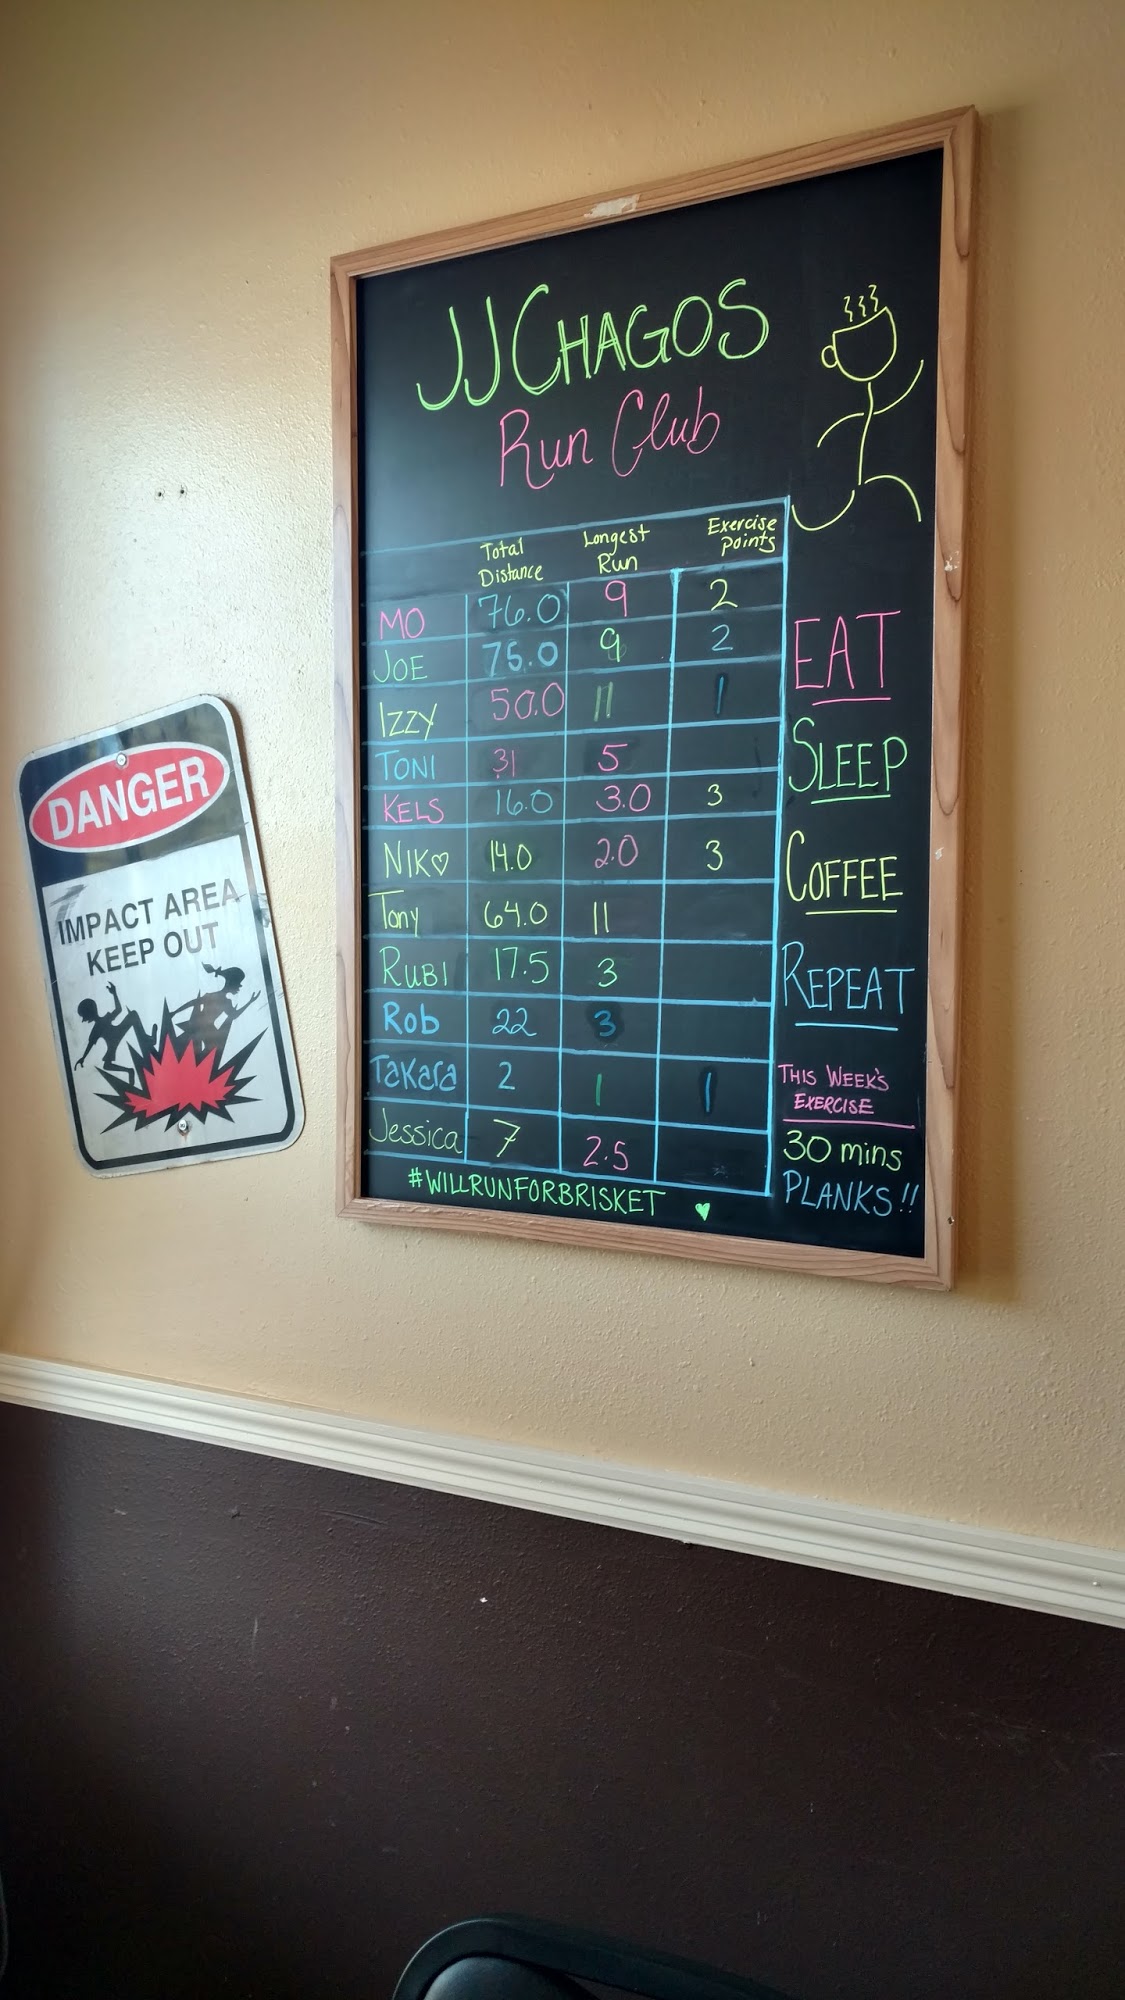 JJCHAGOS
Run Club
Total Distance Longest Run Exercise points
MO 76.0 9 2
JOE 75.0 9 2
IZZY 50.0 11 1
TONI 31 5
KELS 16.0 3.0 3
NIK♡ 14.0 2.0 3
Tony 64.0 11
RUBI 17.5 3
Rob 22 3
TaKara 2 1 1
Jessica 7 2.5
#WILLRUNFORBRISKET ♥
EAT
SLEEP
COFFEE
REPEAT
THIS WEEK'S
EXERCISE
30 mins
PLANKS!!
DANGER
IMPACT AREA
KEEP OUT